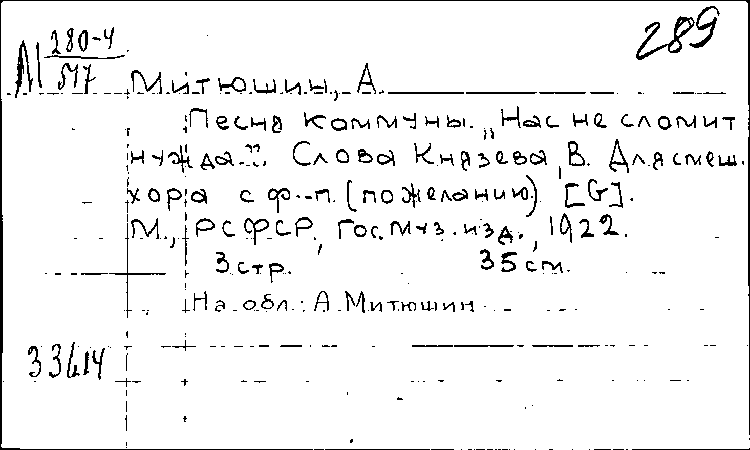 289
М 280-4
517
Митюшин, А.
Песня коммуны. „Нас не сломит
нужда...". Слова Князева, В. Для смеш.
хора с ф.-п. (по желанию) [G].
М., РСФСР, Гос. муз. изд., 1922.
3 стр. 35 см.
На обл.: А. Митюшин
33614